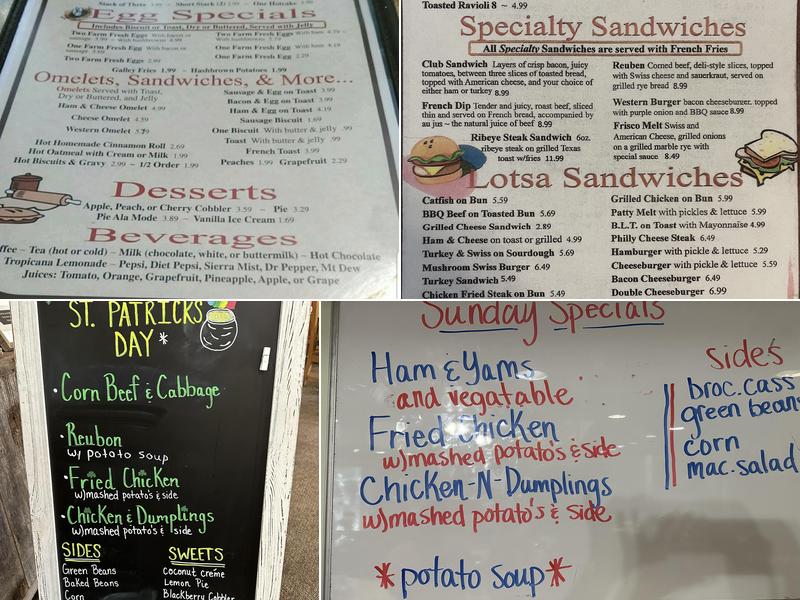 Stack of Three
Short Stack (2)
One Hotcake
Egg Specials
Includes Biscuit or Toast, Dry or Buttered, Served with Jelly
Two Farm Fresh Eggs With bacon or
Two Farm Fresh Eggs With ham 4.79
One Farm Fresh Egg With bacon or
One Farm Fresh Egg With ham 4.19
Two Farm Fresh Eggs 2.99
One Farm Fresh Egg 2.29
Galley Fries 1.99 ~ Hashbrown Potatoes 1.99
Omelets, Sandwiches, & More...
Omelets Served with Toast,
Dry or Buttered, and Jelly
Ham & Cheese Omelet 4.99
Cheese Omelet 4.59
Western Omelet
Sausage & Egg on Toast 3.99
Bacon & Egg on Toast 3.99
Ham & Egg on Toast 4.19
Sausage Biscuit 1.69
One Biscuit With butter & jelly .99
Hot Homemade Cinnamon Roll 2.69
Hot Oatmeal with Cream or Milk 1.99
Hot Biscuits & Gravy 2.99 ~ 1/2 Order 1.99
Toast With butter & jelly .99
French Toast 3.99
Peaches 1.99 Grapefruit 2.29
Desserts
Apple, Peach, or Cherry Cobbler 3.59 ~ Pie 3.29
Pie Ala Mode 3.89 ~ Vanilla Ice Cream 1.69
Beverages
ffee ~ Tea (hot or cold) ~ Milk (chocolate, white, or buttermilk) ~ Hot Chocolate
Tropicana Lemonade ~ Pepsi, Diet Pepsi, Sierra Mist, Dr Pepper, Mt Dew
Juices: Tomato, Orange, Grapefruit, Pineapple, Apple, or Grape
Toasted Ravioli 8 ~ 4.99
Specialty Sandwiches
All Specialty Sandwiches are served with French Fries
Club Sandwich Layers of crisp bacon, juicy
tomatoes, between three slices of toasted bread,
topped with American cheese, and your choice of
either ham or turkey 8.99
French Dip Tender and juicy, roast beef, sliced
thin and served on French bread, accompanied by
au jus ~ the natural juice of beef 8.99
Ribeye Steak Sandwich 6oz.
ribeye steak on grilled Texas
toast w/fries 11.99
Reuben Corned beef, deli-style slices, topped
with Swiss cheese and sauerkraut, served on
grilled rye bread 8.99
Western Burger bacon cheeseburger, topped
with purple onion and BBQ sauce 8.99
Frisco Melt Swiss and
American Cheese, grilled onions
on a grilled marble rye with
special sauce 8.49
Lotsa Sandwiches
Catfish on Bun 5.59
BBQ Beef on Toasted Bun 5.69
Grilled Cheese Sandwich 2.89
Ham & Cheese on toast or grilled 4.99
Turkey & Swiss on Sourdough 5.69
Mushroom Swiss Burger 6.49
Turkey Sandwich 5.49
Chicken Fried Steak on Bun 5.49
Grilled Chicken on Bun 5.99
Patty Melt with pickles & lettuce 5.99
B.L.T. on Toast with Mayonnaise 4.99
Philly Cheese Steak 6.49
Hamburger with pickle & lettuce 5.29
Cheeseburger with pickle & lettuce 5.59
Bacon Cheeseburger 6.49
Double Cheeseburger 6.99
ST. PATRICKS
DAY*
• Corn Beef & Cabbage
• Reubon
w/ potato soup
• Fried Chicken
w/mashed potato's & side
• Chicken & Dumplings
w/mashed potato's & side
SIDES
Green Beans
Baked Beans
Corn
SWEETS
Coconut créme
Lemon Pie
Blackberry Cobbler
Sunday Specials
Ham & Yams
and vegatable
Fried Chicken
w/mashed potato's & side
Chicken-N-Dumplings
w/mashed potato's & side
*potato soup*
side's
broc. cass
green beans
corn
mac. salad